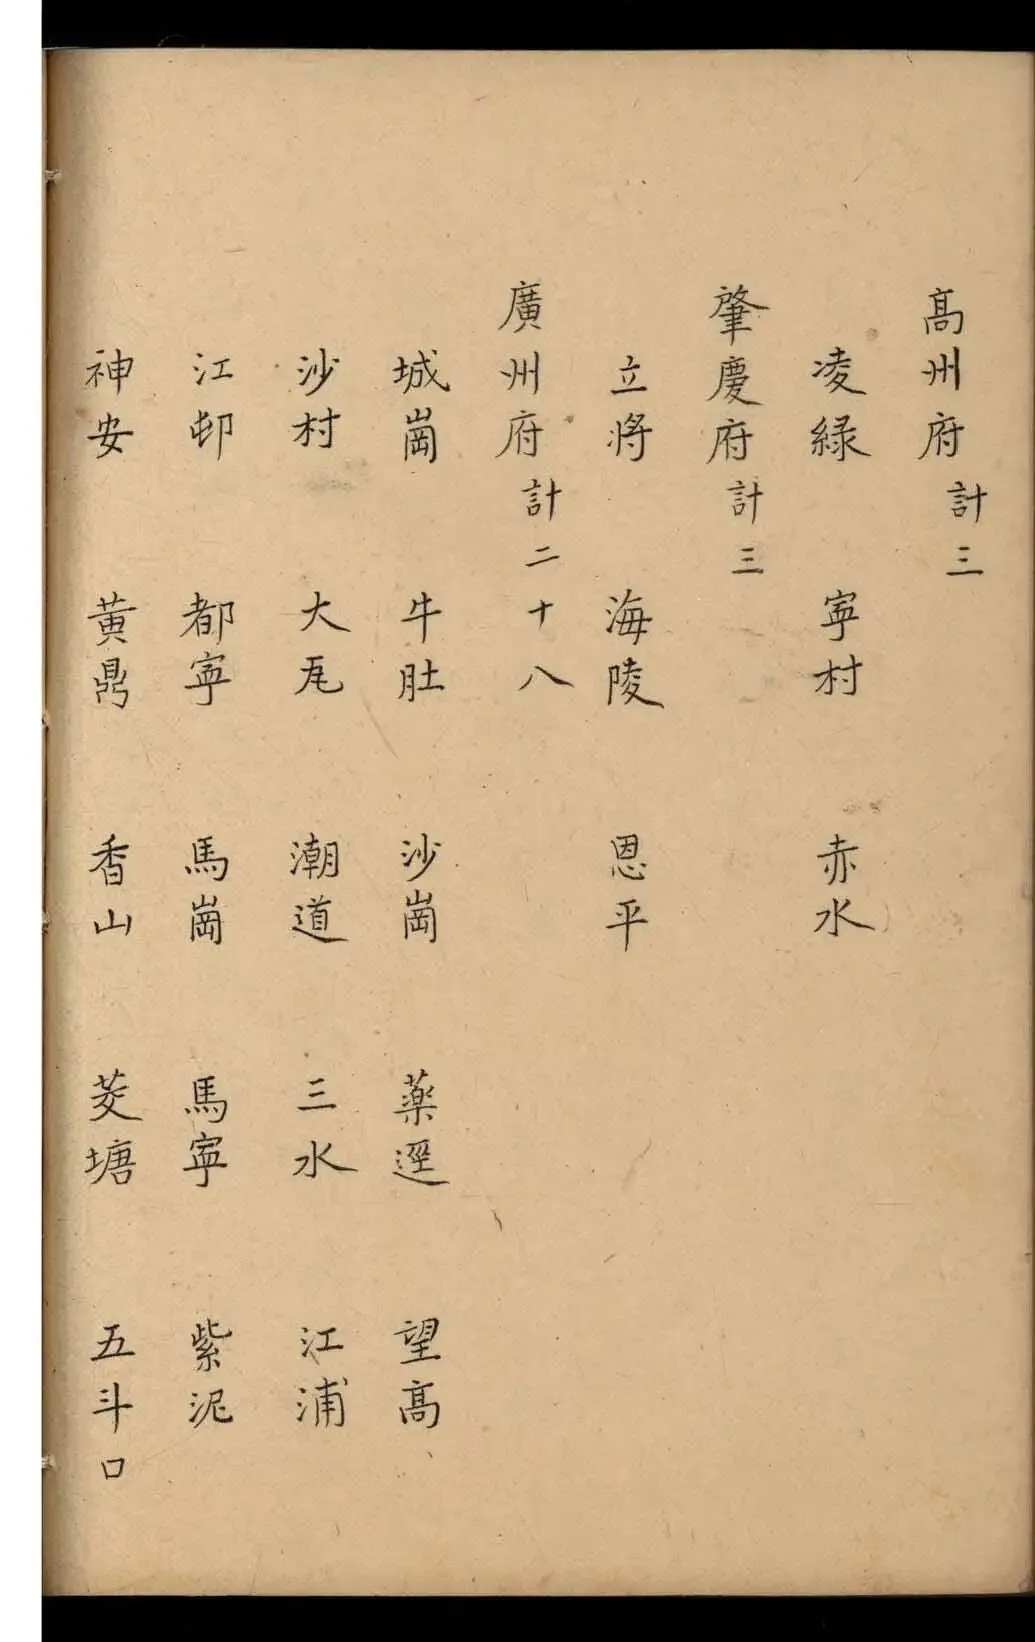 髙州府計三
凌緑 寕村 赤水
肇慶府計三
立將 海陵 恩平
廣州府計二十八
城崗 牛肚 沙崗 藥逕 望髙
沙村 大㡳 潮道 三水 江浦
江邨 都寕 馬崗 馬寕 紫泥
神安 黄鼎 香山 茭塘 五斗口